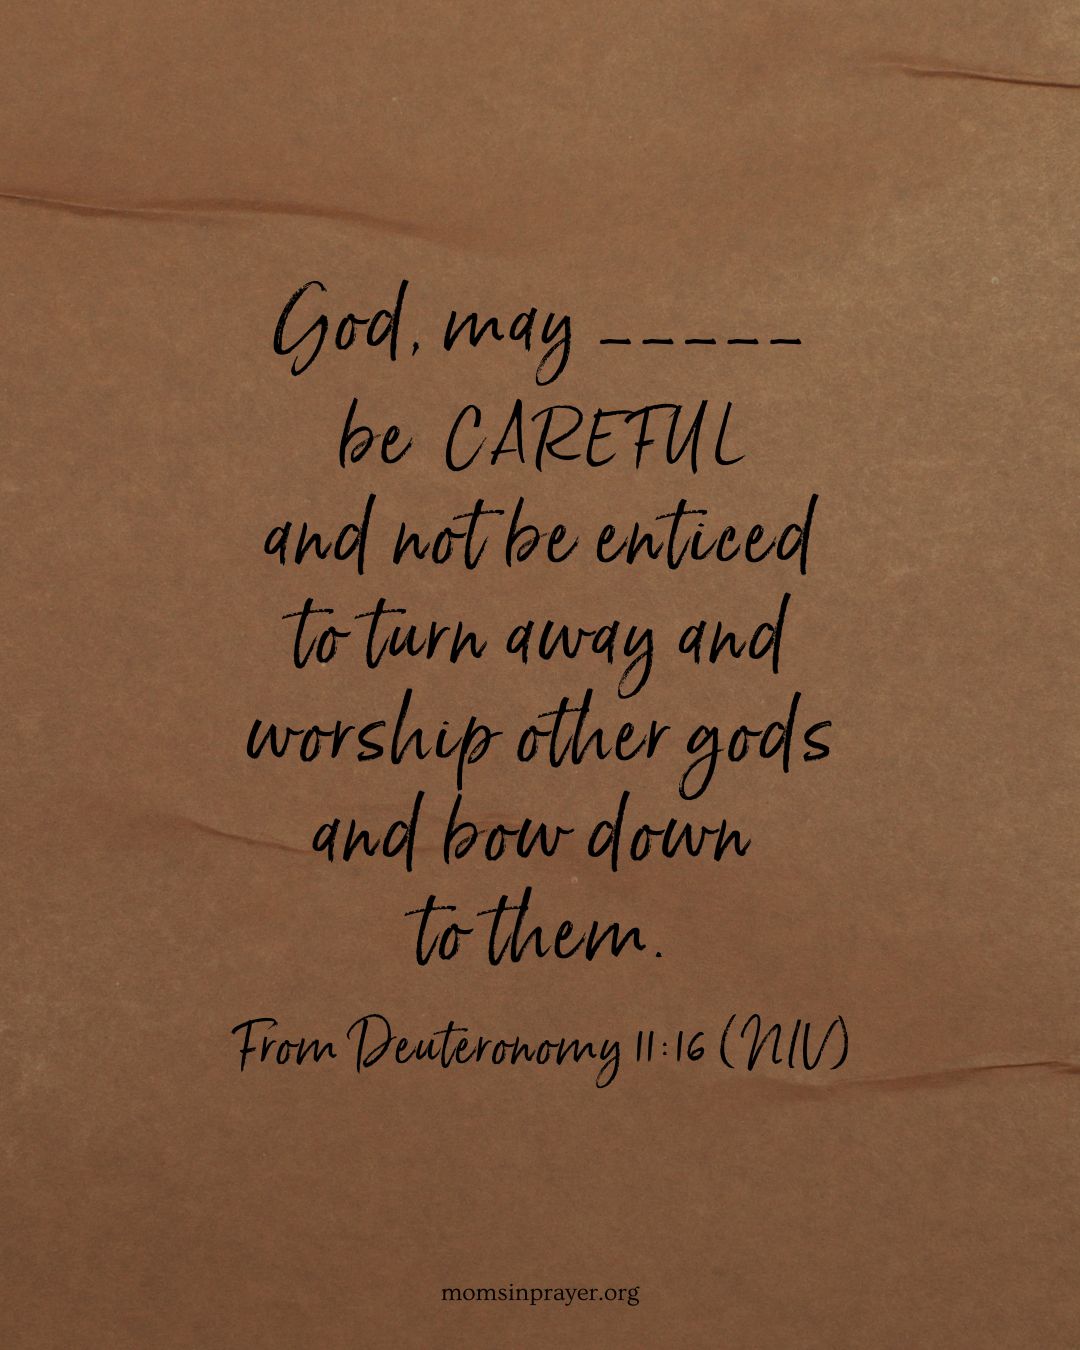 God, may _____
be CAREFUL
and not be enticed
to turn away and
worship other gods
and bow down
to them.
From Deuteronomy 11:16 (NIV)
momsinprayer.org